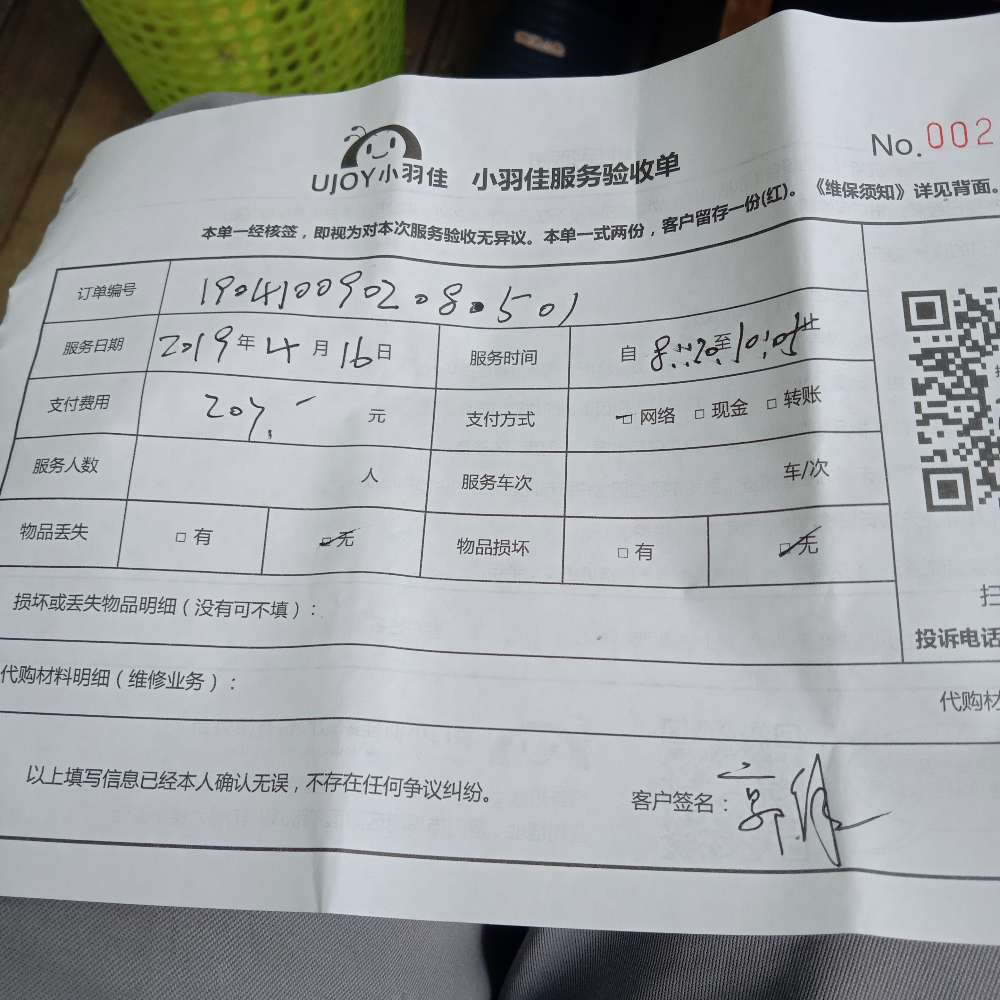 UJOY小羽佳 小羽佳服务验收单 No.002
本单一经核签，即视为对本次服务验收无异议。本单一式两份，客户留存一份(红)。《维保须知》详见背面。
订单编号 190410090208501
服务日期 2019年4月16日 服务时间 自8:20至10:05止
支付费用 207.- 元 支付方式 □网络 □现金 □转账
服务人数 人 服务车次 车/次
物品丢失 □有 □无 物品损坏 □有 □无
损坏或丢失物品明细（没有可不填）：
扫
投诉电话
代购材料明细（维修业务）： 代购材
以上填写信息已经本人确认无误，不存在任何争议纠纷。 客户签名：